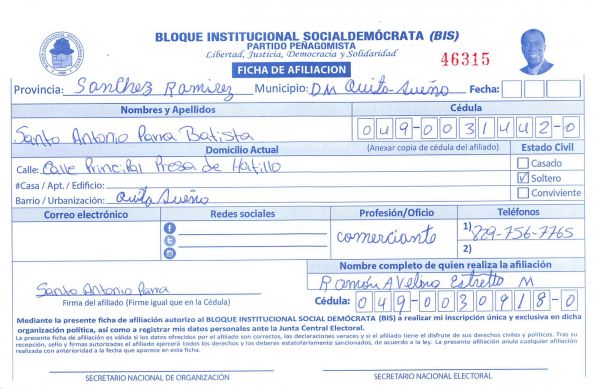 BLOQUE INSTITUCIONAL SOCIALDEMÓCRATA (BIS)
PARTIDO PEÑAGOMISTA
Libertad, Justicia, Democracia y Solidaridad
46315
FICHA DE AFILIACION
Provincia: Sanchez Ramirez Municipio: DM Quita-Sueño Fecha:
Nombres y Apellidos Cédula
Santo Antonio Parra Batista 049-0031442-0
Domicilio Actual (Anexar copia de cédula del afiliado) Estado Civil
Calle: Calle Principal Presa de Hatillo Casado
#Casa / Apt. / Edificio: Soltero
Barrio / Urbanización: Quita Sueño Conviviente
Correo electrónico Redes sociales Profesión/Oficio Teléfonos
comerciante 1) 829-756-7765
2)
Nombre completo de quien realiza la afiliación
Santo Antonio Parra Ramón Avelino M
Firma del afiliado (Firme igual que en la Cédula) Cédula: 049-0030918-0
Mediante la presente ficha de afiliación autorizo al BLOQUE INSTITUCIONAL SOCIAL DEMÓCRATA (BIS) a realizar mi inscripción única y exclusiva en dicha
organización política, así como a registrar mis datos personales ante la Junta Central Electoral.
La presente ficha de afiliación es válida si los datos ofrecidos por el afiliado son correctos, las declaraciones veraces y si el afiliado tiene el disfrute de sus derechos civiles y políticos. Tras su
recepción, sello y firmas autorizadas el afiliado ejercerá todos los derechos y los deberes estatutariamente sancionados, de acuerdo a la ley. La presente afiliación anula cualquier afiliación
realizada con anterioridad a la fecha que aparece en esta ficha.
SECRETARIO NACIONAL DE ORGANIZACIÓN SECRETARIO NACIONAL ELECTORAL